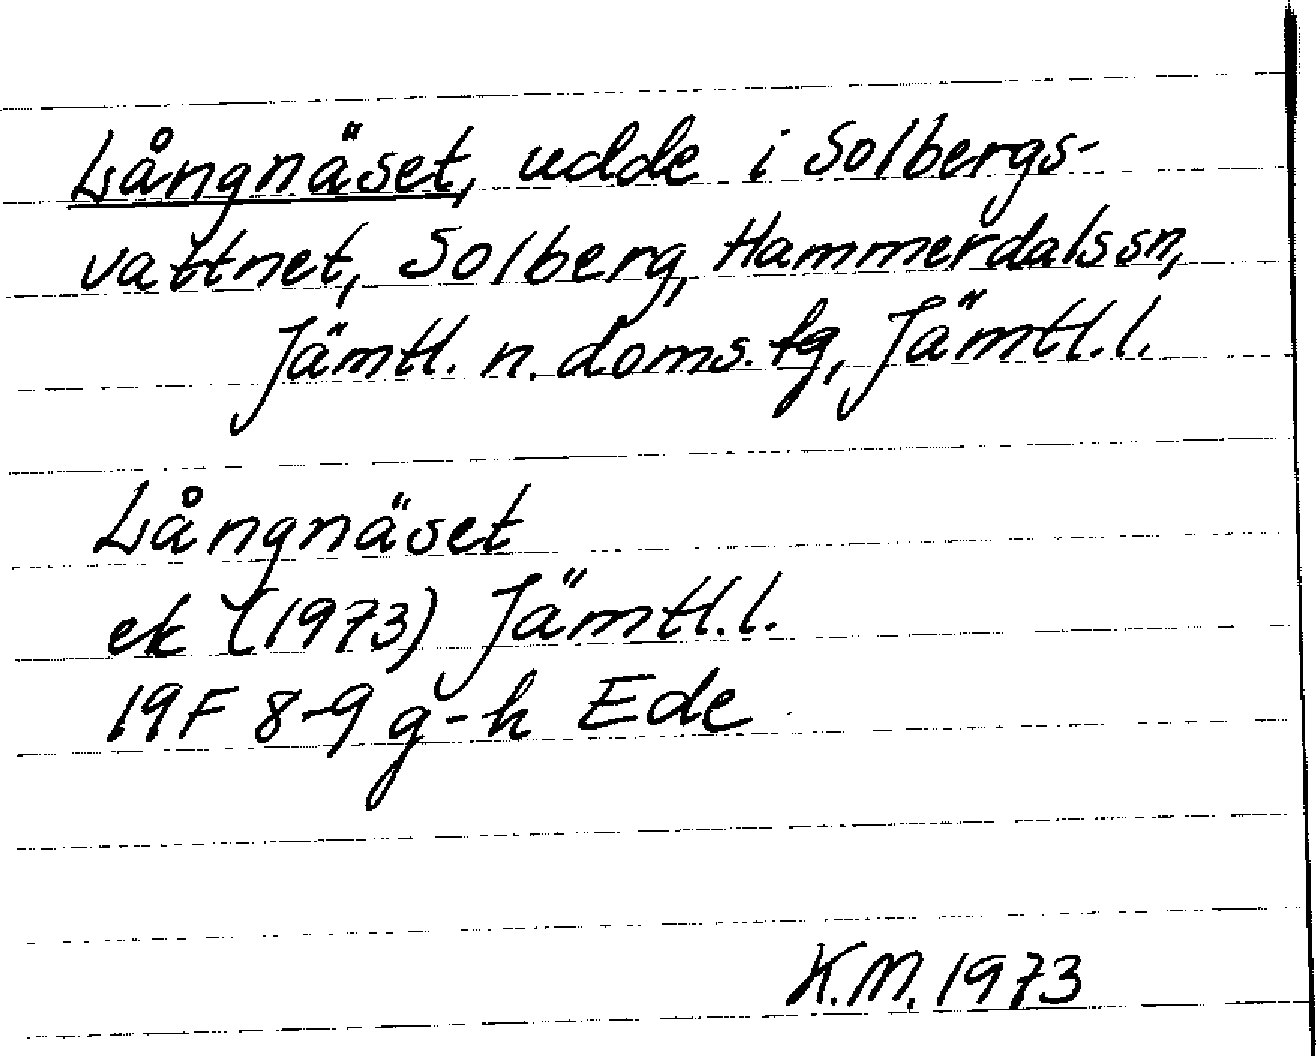 Långnäset, udde i Solbergs-
vattnet, Solberg, Hammerdals sn,
Jämtl. n. doms. tg, Jämtl. l.
Långnäset
ek (1973) Jämtl. l.
19F 8-9 g-h Ede
K.M. 1973